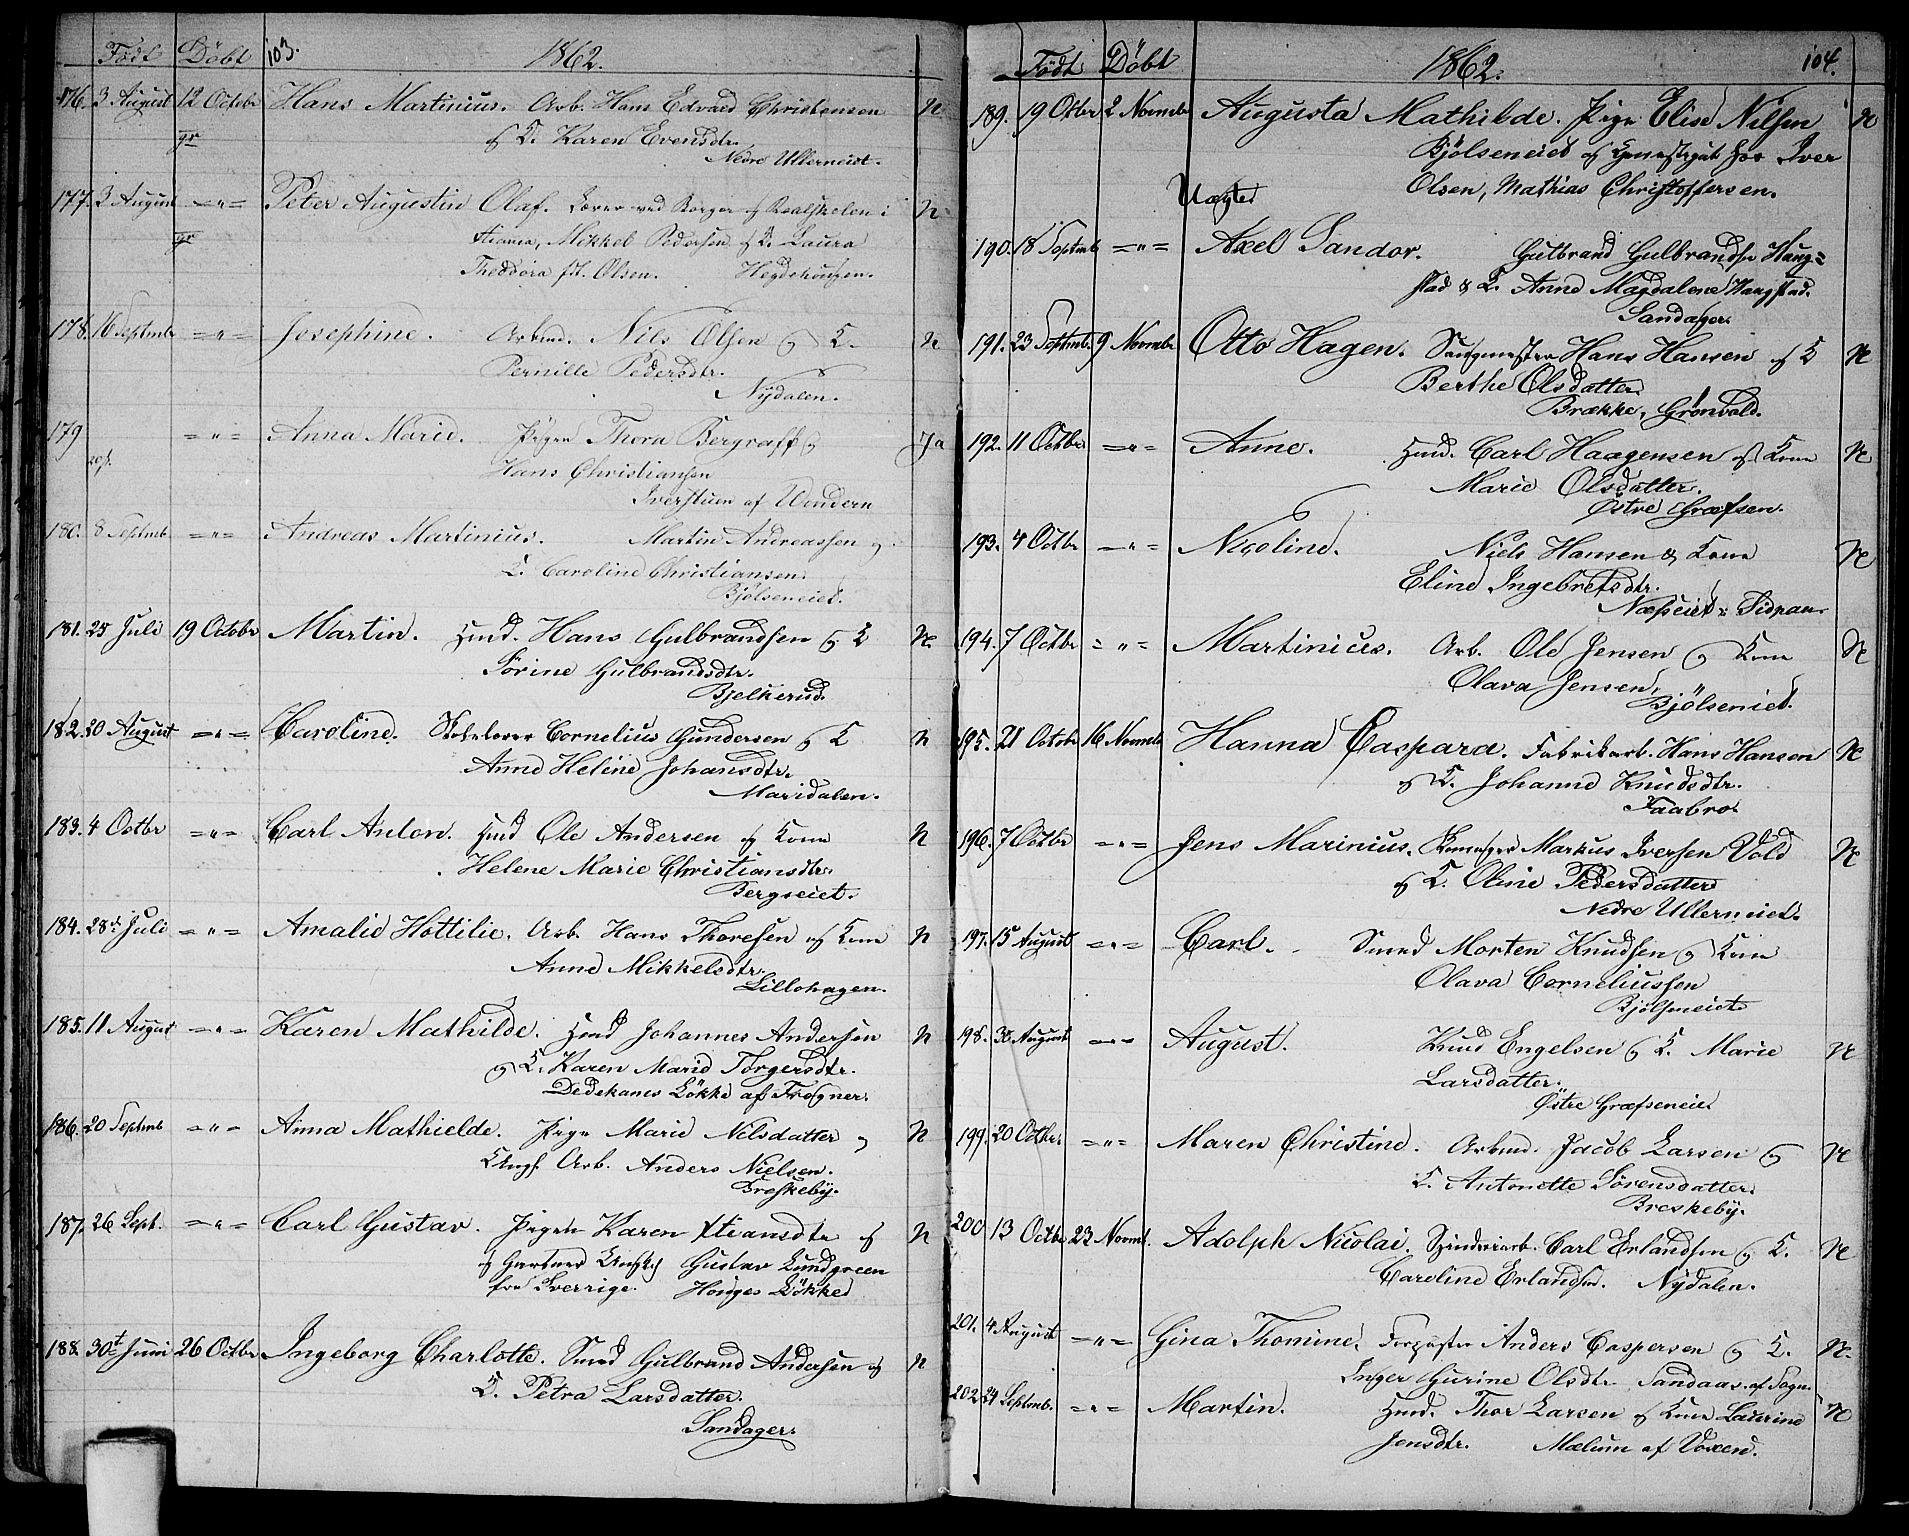 Födt Döbt 103. 1862.
176. 3 August 12 Octobr Hans Martinius. Arb. Hans Edvard Christensen N
gr. K. Karen Evensdtr.
Nedre Ullerneiet.
177. 3 August -"- Peter Augustin Olaf. Lærer ved Borger og Realskolen i N
gr. Xtiania, Mikkel Pedersen og K. Laura
Theodora f. Olsen. Hegdehougen.
178. 16 Septmbr -"- Josephine. Arbmd. Nils Olsen og K. N
Pernille Pedersdtr.
Nydalen.
179 -"- Anna Marie. Pigen Thora Bergraff og Ja
Hans Christiansen
Iverstuen af Vindern
180. 8 Septmb -"- Andreas Martinius. Martin Andreassen og
K. Caroline Christiansen.
Bjölseneiet.
181. 25 Juli 19 Octobr Martin. Hmd. Hans Gulbrandsen og K N.
Sörine Gulbrandsdtr.
Bjelkerud.
182. 20 August -"- Caroline. Skolelærer Cornelius Gundersen og K N
Anne Helene Johansdtr.
Maridalen.
183. 4 Octbr -"- Carl Anton. Hmd Ole Andersen og Kone N
Helene Marie Christiansdtr.
Bergseiet.
184. 28de Juli -"- Amalie Hottilie. Arb. Hans Thoresen og Kone N
Anne Mikkelsdtr.
Lillohagen.
185. 11 August -"- Karen Mathilde. Hmd Johannes Andersen N
og K. Karen Marie Torgersdtr.
Dedekams Lökke af Frogner.
186. 20 Septmb -"- Anna Mathielde. Pige Marie Nilsdatter og N
Ungk. Arb. Anders Nielsen.
Breskeby.
187. 26 Sept. -"- Carl Gustav. Pigen Karen Xtiansdtr og N
og Gartner Ungk. Gustav Lundgreen
fra Sverrige. Houges Lökke
188. 30t Juni 26 Octbr Ingeborg Charlotte. Smed Gulbrand Andersen og N
K. Petra Larsdatter.
Sandager.
Födt Döbt 1862. 104.
189. 19 Octbr 2 Novmbr Augusta Mathilde. Pige Elise Nilsen N
Bjölseneiet og hos Iver
Olsen, Mathias Christoffersen.
Uægte
190. 18 Septmb -"- Axel Sandor. Gulbrand Gulbrandsn Haug=
stad & K. Anne Magdalene Haugstad.
Sandager.
191. 23 Septmb. 9 Novmbr Otto Hagen. Saugmester Hans Hansen og K N
Berthe Olsdatter
Brække, Grönvold.
192. 11 Octbr -"- Anne. Hmd. Carl Haagensen og Kone N
Marie Olsdatter.
Østre Græfsen.
193. 4 Octbr -"- Nicoline. Niels Hansen & Kone N
Eline Ingebretsdtr.
194. 7 Octbr -"- Martinius. Arb. Ole Jensen og Kone N
Olava Jensen,
Bjölseniet.
195. 21 Octobr 16 Novmb Hanna Caspara. Fabrikarb. Hans Hansen N
og K. Johanne Knudsdtr.
Faabro.
196. 7 Octbr -"- Jens Marinius. Markus Iversen Vold N
og K. Oline Pedersdatter
Nedre Ullerneiet.
197. 15 August -"- Carl. Smed Morten Knudsen og Kone
Olava Corneliussen
Bjölseneiet
198. 30 August -"- August. Knud Engelsen og K. Marie N
Larsdatter.
Østre Græfseneie.
199. 20 Octbr -"- Maren Christine. Arbmd. Jacob Larsen og N
K. Antonette Sörensdatter.
Breskeby.
200 13 Octbr 23 Novmb. Adolph Nicolai. Spinderiarb. Carl Erlandsen og K. N
Caroline Erlandsn. Nydalen.
201. 4 August -"- Gina Thomine. Forpagter Anders Caspersen og K. N.
Inger Gurine Olsdtr Sandaas af Sogn
202 24 Septmb. -"- Martin. Hmd. Thor Larsen og Kone Laurine N
Jensdtr. Mælum af Voxen.